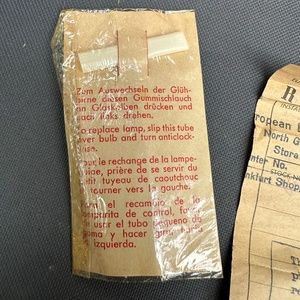 Zum Auswechseln der Glüh-
birne diesen Gummischlauch
an Glaskolben drücken und
nach links drehen.
To replace lamp, slip this tube
over bulb and turn anticlock-
wise.
Pour le rechange de la lampe-
prière de se servir du
petit tuyeau de caoutchouc
tourner vers la gauche.
Para el recambio de la
lamparita de control, favor
usar el tubo pequeno de
goma y hacer girar hacia
izquierda.
R
ropean
North G
Stora
nter No.
STOCK NO
nkfurt Shop
T